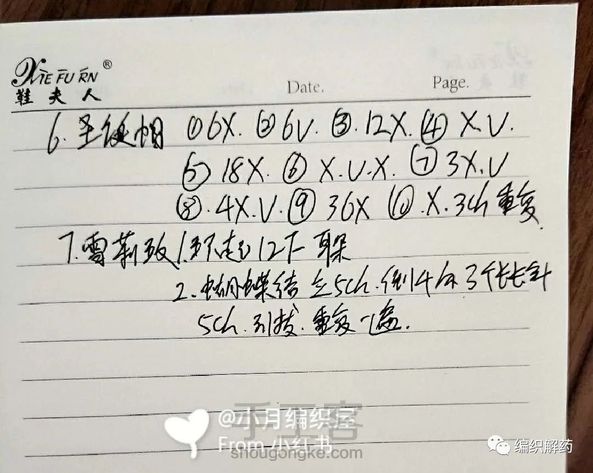 XIE FU RN®
鞋夫人
Date. Page.
6. 圣诞帽 ①6X. ②6V. ③.12X. ④ X.V.
⑤ 18X. ⑥ X.V.X. ⑦ 3X.V
⑧.4X.V. ⑨ 36X ⑩.X.3ch 重复.
7. 雪莉玫 1.环起12下 耳朵
2. 蝴蝶结 立5ch. 倒4针 3个长长针
5ch. 引拔. 重复一遍.
@小月编织屋
From 小红书
手工客
shougongke.com
编织解药